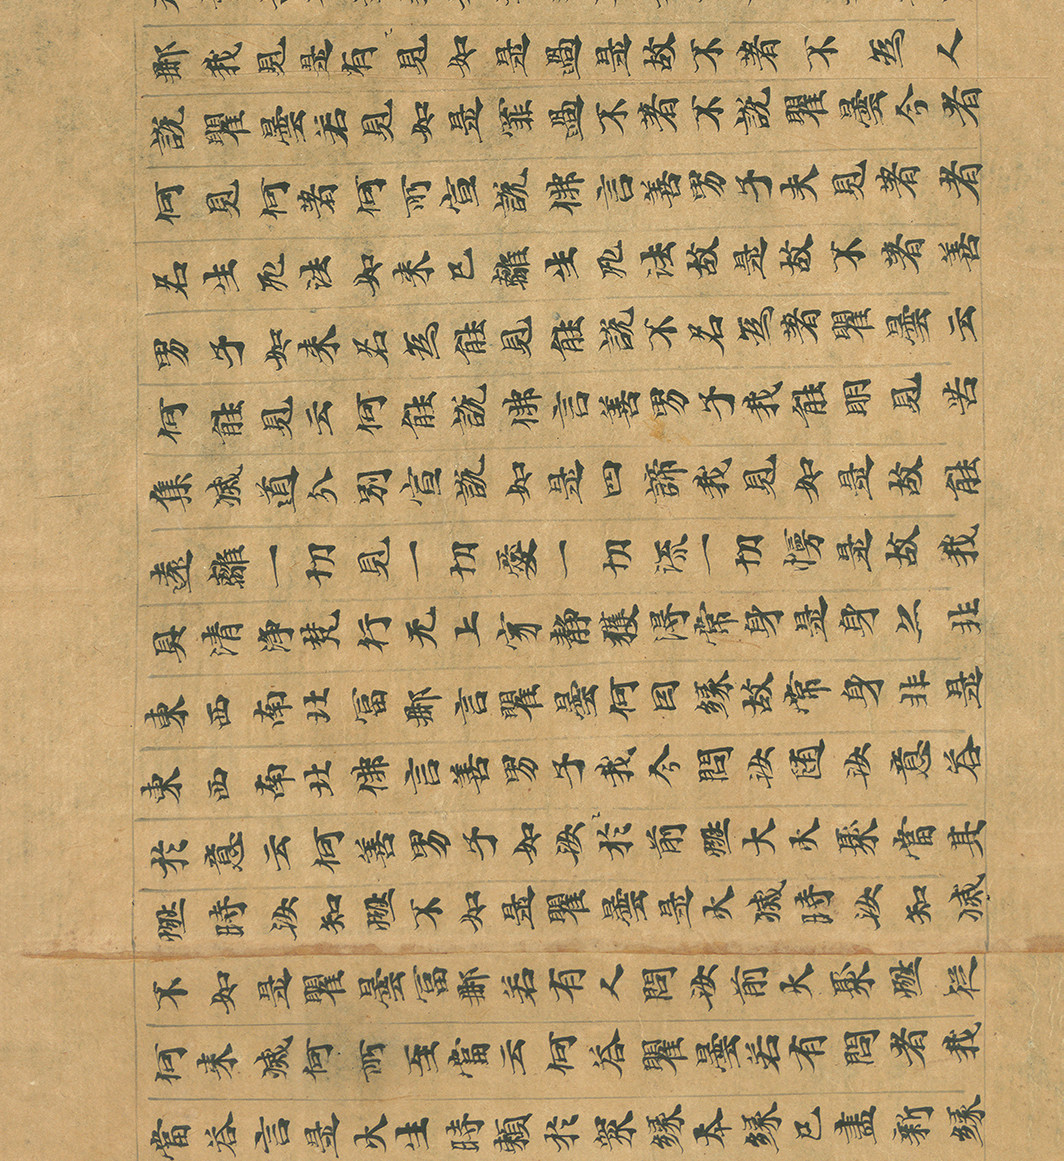 那我見是有見如是過是故不著不為人
說瞿曇若見如是罪過不著不說瞿曇今者
何見何著何所宣說佛言善男子夫見著者
名生死法如来已離生死法故是故不著善
男子如来名為能見能說不名為著瞿曇云
何能見云何能說佛言善男子我能明見苦
集滅道分別宣說如是四諦我見如是故能
遠離一切見一切愛一切流一切慢是故我
具清淨梵行无上寂靜獲得常身是身亦非
東西南北富那言瞿曇何因緣故常身非是
東西南北佛言善男子我今問汝随汝意答
於意云何善男子如汝於前燃大火聚當其
燃時汝知燃不如是瞿曇是火滅時汝知滅
不如是瞿曇富那若有人問汝前火聚燃從
何来滅何所至當云何答瞿曇若有問者我
當答言是火生時賴於眾緣本緣已盡新緣